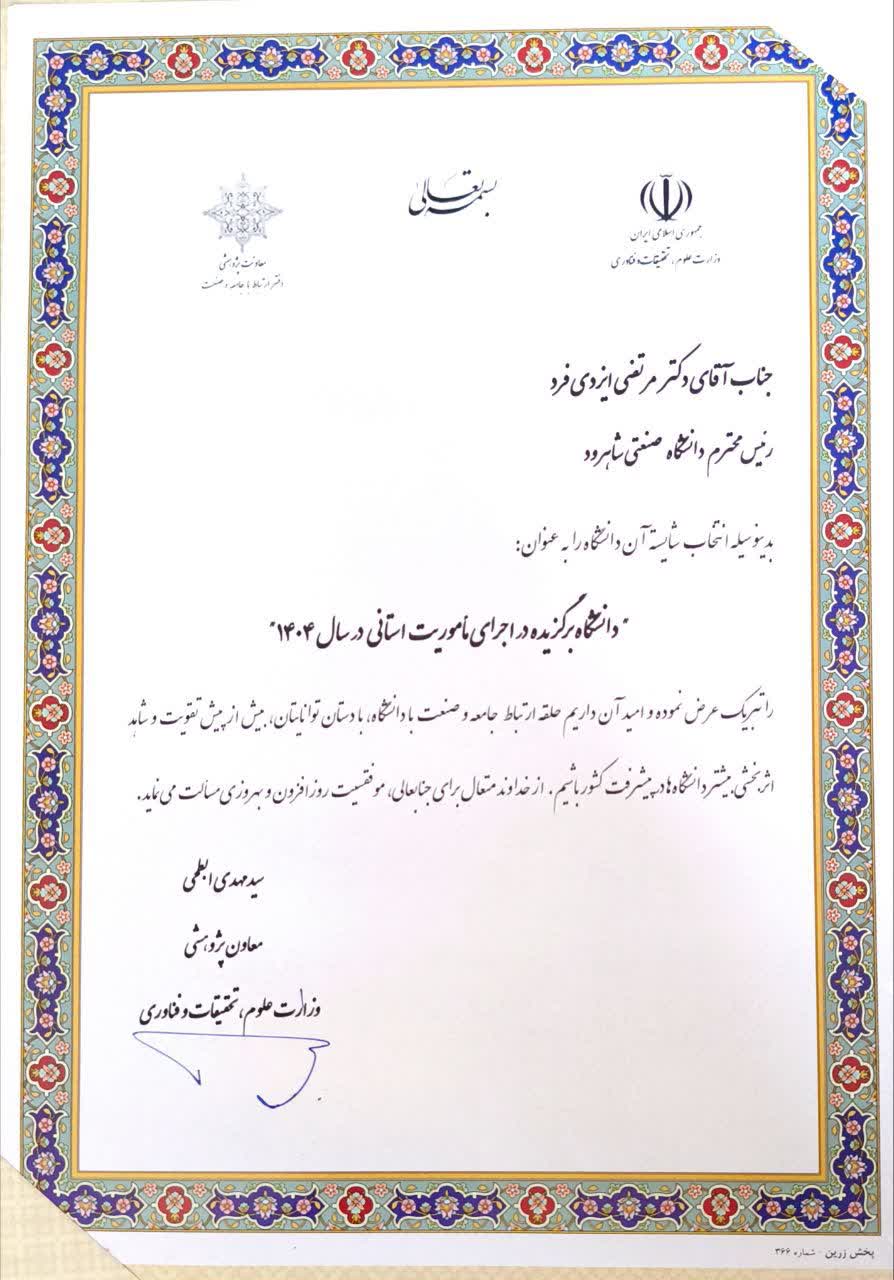 بسمه تعالی
جمهوری اسلامی ایران
وزارت علوم، تحقیقات و فناوری
معاونت پژوهشی
دفتر ارتباط با جامعه و صنعت
جناب آقای دکتر مرتضی ایزدی فرد
رئیس محترم دانشگاه صنعتی شاهرود
بدینوسیله انتخاب شایسته آن دانشگاه را به عنوان:
"دانشگاه برگزیده در اجرای مأموریت استانی در سال ۱۴۰۴"
را تبریک عرض نموده و امید آن داریم حلقه ارتباط جامعه و صنعت با دانشگاه، با دستان توانایتان، بیش از پیش تقویت و شاهد
اثربخشی بیشتر دانشگاه ها در پیشرفت کشور باشیم. از خداوند متعال برای جنابعالی، موفقیت روزافزون و بهروزی مسالت می نماید.
سید مهدی ابطحی
معاون پژوهشی
وزارت علوم، تحقیقات و فناوری
پخش زرین - شماره ۳۶۶